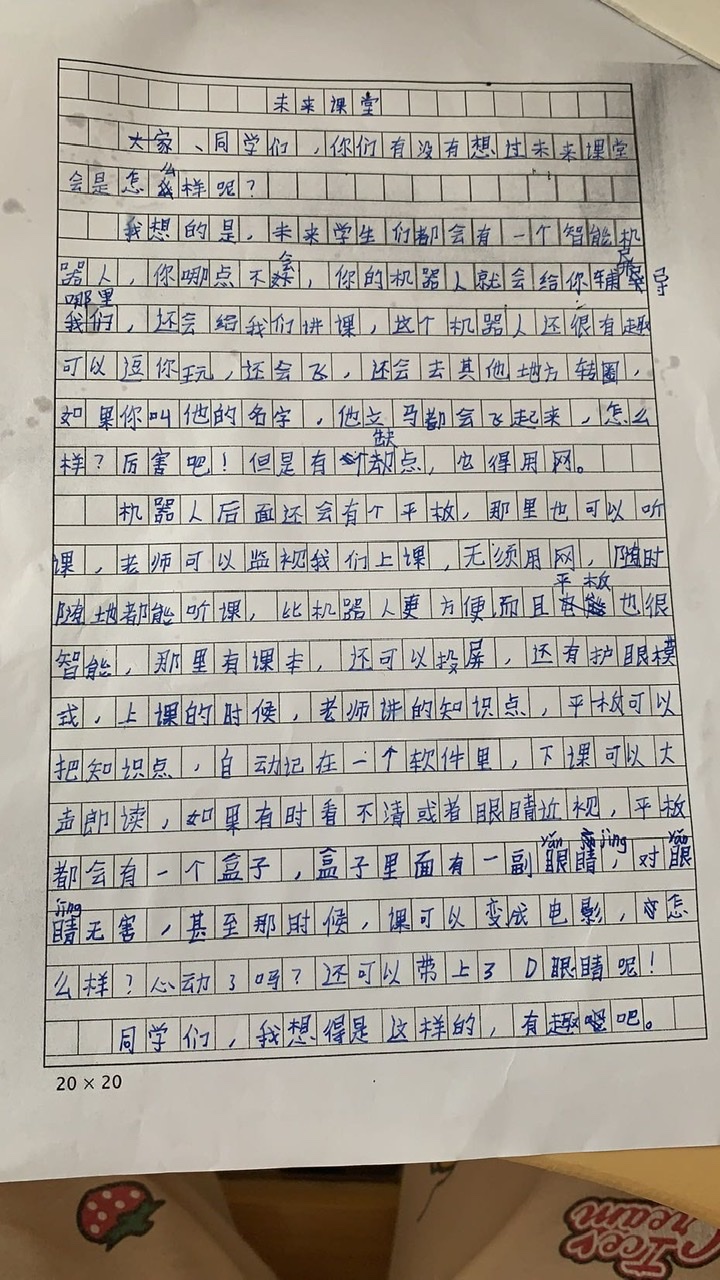 未来课堂
大家、同学们，你们有没有想过未来课堂
会是怎么样呢？
我想的是，未来学生们都会有一个智能机
器人，你哪点不会，你的机器人就会给你辅导
哪里
我们，还会给我们讲课，这个机器人还很有趣
可以逗你玩，还会飞，还会去其他地方转圈，
如果你叫他的名字，他立马都会飞起来，怎么
样？厉害吧！但是有个缺点，它得用网。
机器人后面还会有个平板，那里也可以听
课，老师可以监视我们上课，无须用网，随时
随地都能听课，比机器人更方便，而且平板也很
智能，那里有课本，还可以投屏，还有护眼模
式，上课的时候，老师讲的知识点，平板可以
把知识点，自动记在一个软件里，下课可以大
声郎读，如果有时看不清或者眼睛近视，平板
都会有一个盒子，盒子里面有一副眼睛，对眼
yǎn jing yǎn
睛无害，甚至那时候，课可以变成电影，怎
jing
么样？心动了吗？还可以带上3D眼睛呢！
同学们，我想得是这样的，有趣吧。
20×20
Icec
ream